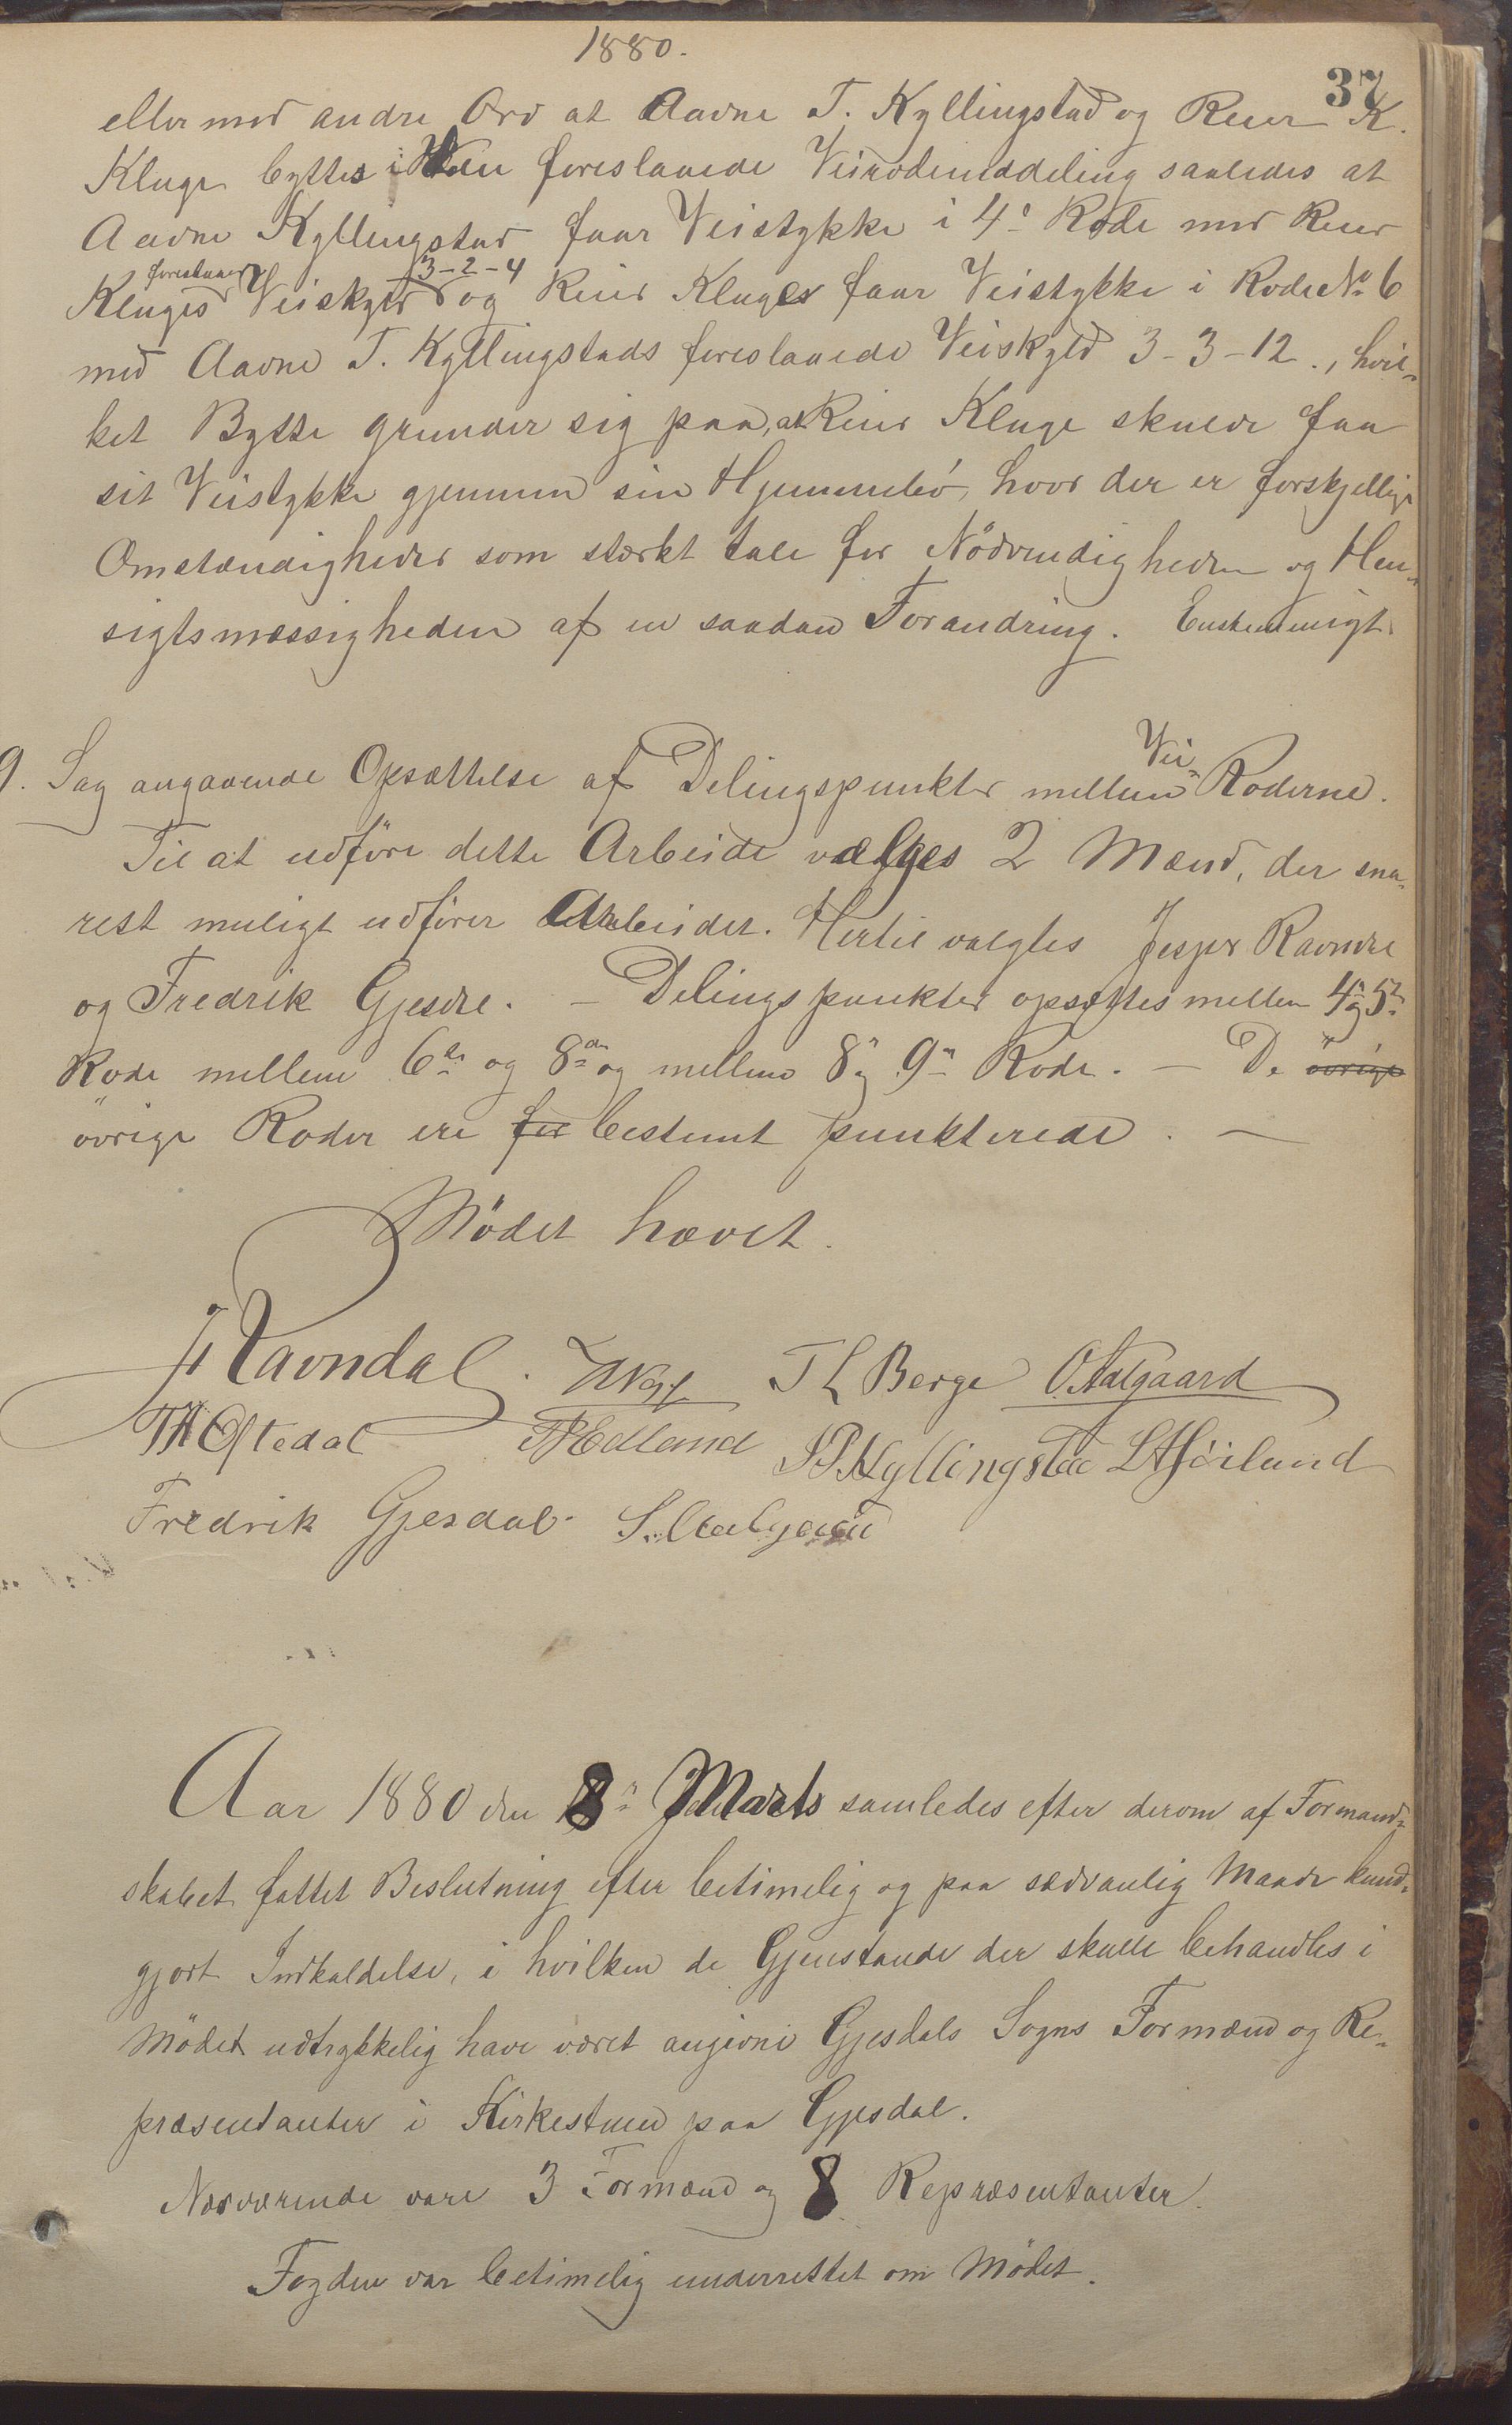 1880.
37
eller med andre Ord at Aadne T. Kyllingstad og Reier K.
Kluge byttes i den foreslaaede Veirodeinddeling saaledes at
Aadne Kyllingstad faar Veistykke i 4de Rode med Reier
Kluges foreslaaede Veiskyld 3-2-4 og Reier Kluges faar Veistykke i Rode No 6
med Aadne T. Kyllingstads foreslaaede Veiskyld 3-3-12., hvil-
ket Bytte grunder sig paa, at Reier Kluge skulde faa
sit Veistykke gjennem sin Hjemmebö, hvor der er forskjellige
Omstændigheder som stærkt tale for Nödvendigheden og Hen-
sigtsmæssigheden af en saadan Forandring. Enstemmigt.
9. Sag angaaende Opsættelse af Delingspunkter mellem Vei-Roderne.
Til at udföre dette Arbeide vælges 2 Mænd, der sna-
rest muligt udförer Arbeidet. Hertil valgtes Jesper Ravndal
og Fredrik Gjesdal. - Delingspunkter opsættes mellem 4de og 5te
Rode mellem 6te og 8de og mellem 8de og 9de Rode. - De övrige
övrige Roder ere for bestemt punkterede. -
Mödet hævet.
J Ravndal. T L Berge O. Aalgaard
TA Oftedal T Edland S P Kyllingstad L A Höiland
Fredrik Gjesdal. S. Aalgaard
Aar 1880 den 8de Marts samledes efter derom af Formand-
skabet fattet Beslutning efter betimelig og paa sædvanlig Maade kund-
gjort Indkaldelse, i hvilken de Gjenstande der skulle behandles i
Mödet udtrykkelig have været angivne Gjesdals Sogns Formænd og Re-
præsentanter i Kirkestuen paa Gjesdal.
Nærværende vare 3 Formænd og 8 Repræsentanter.
Fogden var betimelig underrettet om Mödet.